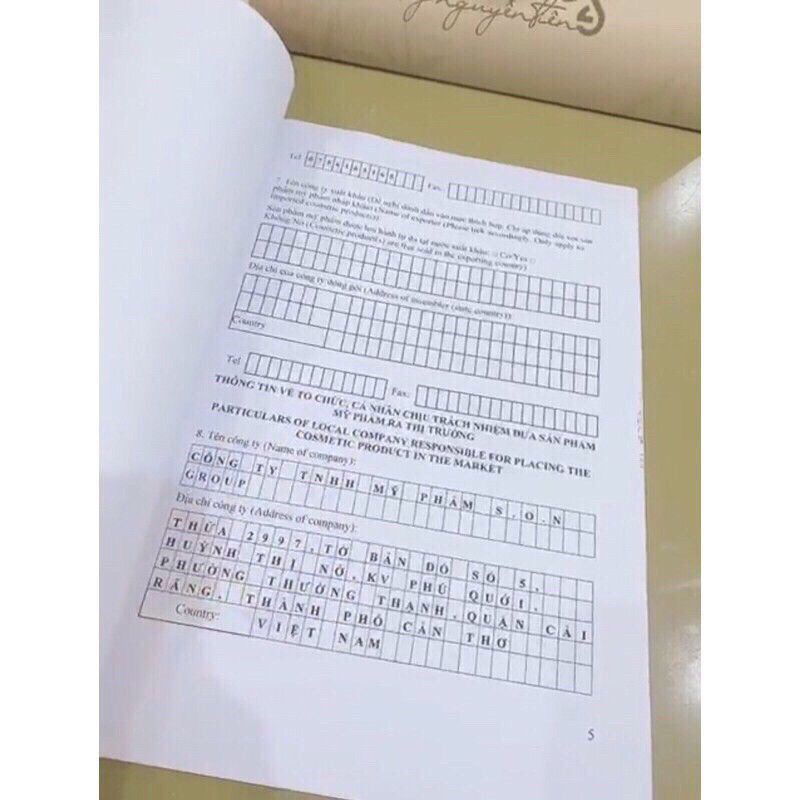 Nguyên Tiên
Tel
Fax:
7. Tên công ty xuất khẩu (Đề nghị đánh dấu vào mục thích hợp. Chỉ áp dụng đối với sản
phẩm mỹ phẩm nhập khẩu) (Name of exporter (Please tick accordingly. Only apply to
imported cosmetic products)):
Sản phẩm mỹ phẩm được lưu hành tự do tại nước xuất khẩu: □ Có/Yes □
Không/No (Cosmetic product(s) are free sold in the exporting country)
Địa chỉ của công ty đóng gói (Address of assembler (state country)):
Country
Tel
Fax:
THÔNG TIN VỀ TỔ CHỨC, CÁ NHÂN CHỊU TRÁCH NHIỆM ĐƯA SẢN PHẨM
MỸ PHẨM RA THỊ TRƯỜNG
PARTICULARS OF LOCAL COMPANY RESPONSIBLE FOR PLACING THE
COSMETIC PRODUCT IN THE MARKET
8. Tên công ty (Name of company):
CÔNG TY TNHH MỸ PHẨM S.O.N
GROUP
Địa chỉ công ty (Address of company):
THỬA 2997, TỜ BẢN ĐỒ SỐ 5,
HUỲNH THỊ NỞ, KV PHÚ QUỚI,
PHƯỜNG THƯỜNG THẠNH, QUẬN CÁI
RĂNG, THÀNH PHỐ CẦN THƠ
Country:
VIỆT NAM
5